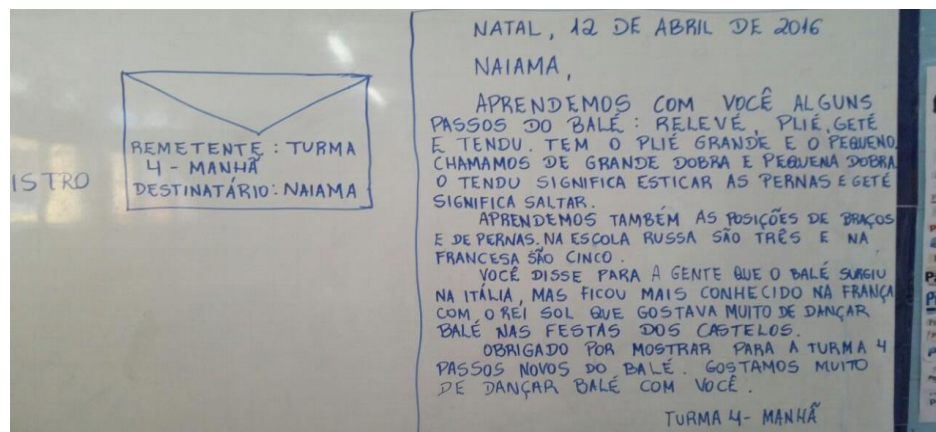 ISTRO
REMETENTE : TURMA
4 - MANHÃ
DESTINATÁRIO: NAIAMA
NATAL, 12 DE ABRIL DE 2016
NAIAMA,
APRENDEMOS COM VOCÊ ALGUNS
PASSOS DO BALÉ : RELEVÉ, PLIÉ, GETÉ
E TENDU. TEM O PLIÉ GRANDE E O PEQUENO,
CHAMAMOS DE GRANDE DOBRA E PEQUENA DOBRA
O TENDU SIGNIFICA ESTICAR AS PERNAS E GETÉ
SIGNIFICA SALTAR.
APRENDEMOS TAMBÉM AS POSIÇÕES DE BRAÇOS
E DE PERNAS. NA ESCOLA RUSSA SÃO TRÊS E NA
FRANCESA SÃO CINCO.
VOCÊ DISSE PARA A GENTE QUE O BALÉ SURGIU
NA ITÁLIA, MAS FICOU MAIS CONHECIDO NA FRANÇA
COM O REI SOL QUE GOSTAVA MUITO DE DANÇAR
BALÉ NAS FESTAS DOS CASTELOS.
OBRIGADO POR MOSTRAR PARA A TURMA 4
PASSOS NOVOS DO BALÉ. GOSTAMOS MUITO
DE DANÇAR BALÉ COM VOCÊ.
TURMA 4 - MANHÃ